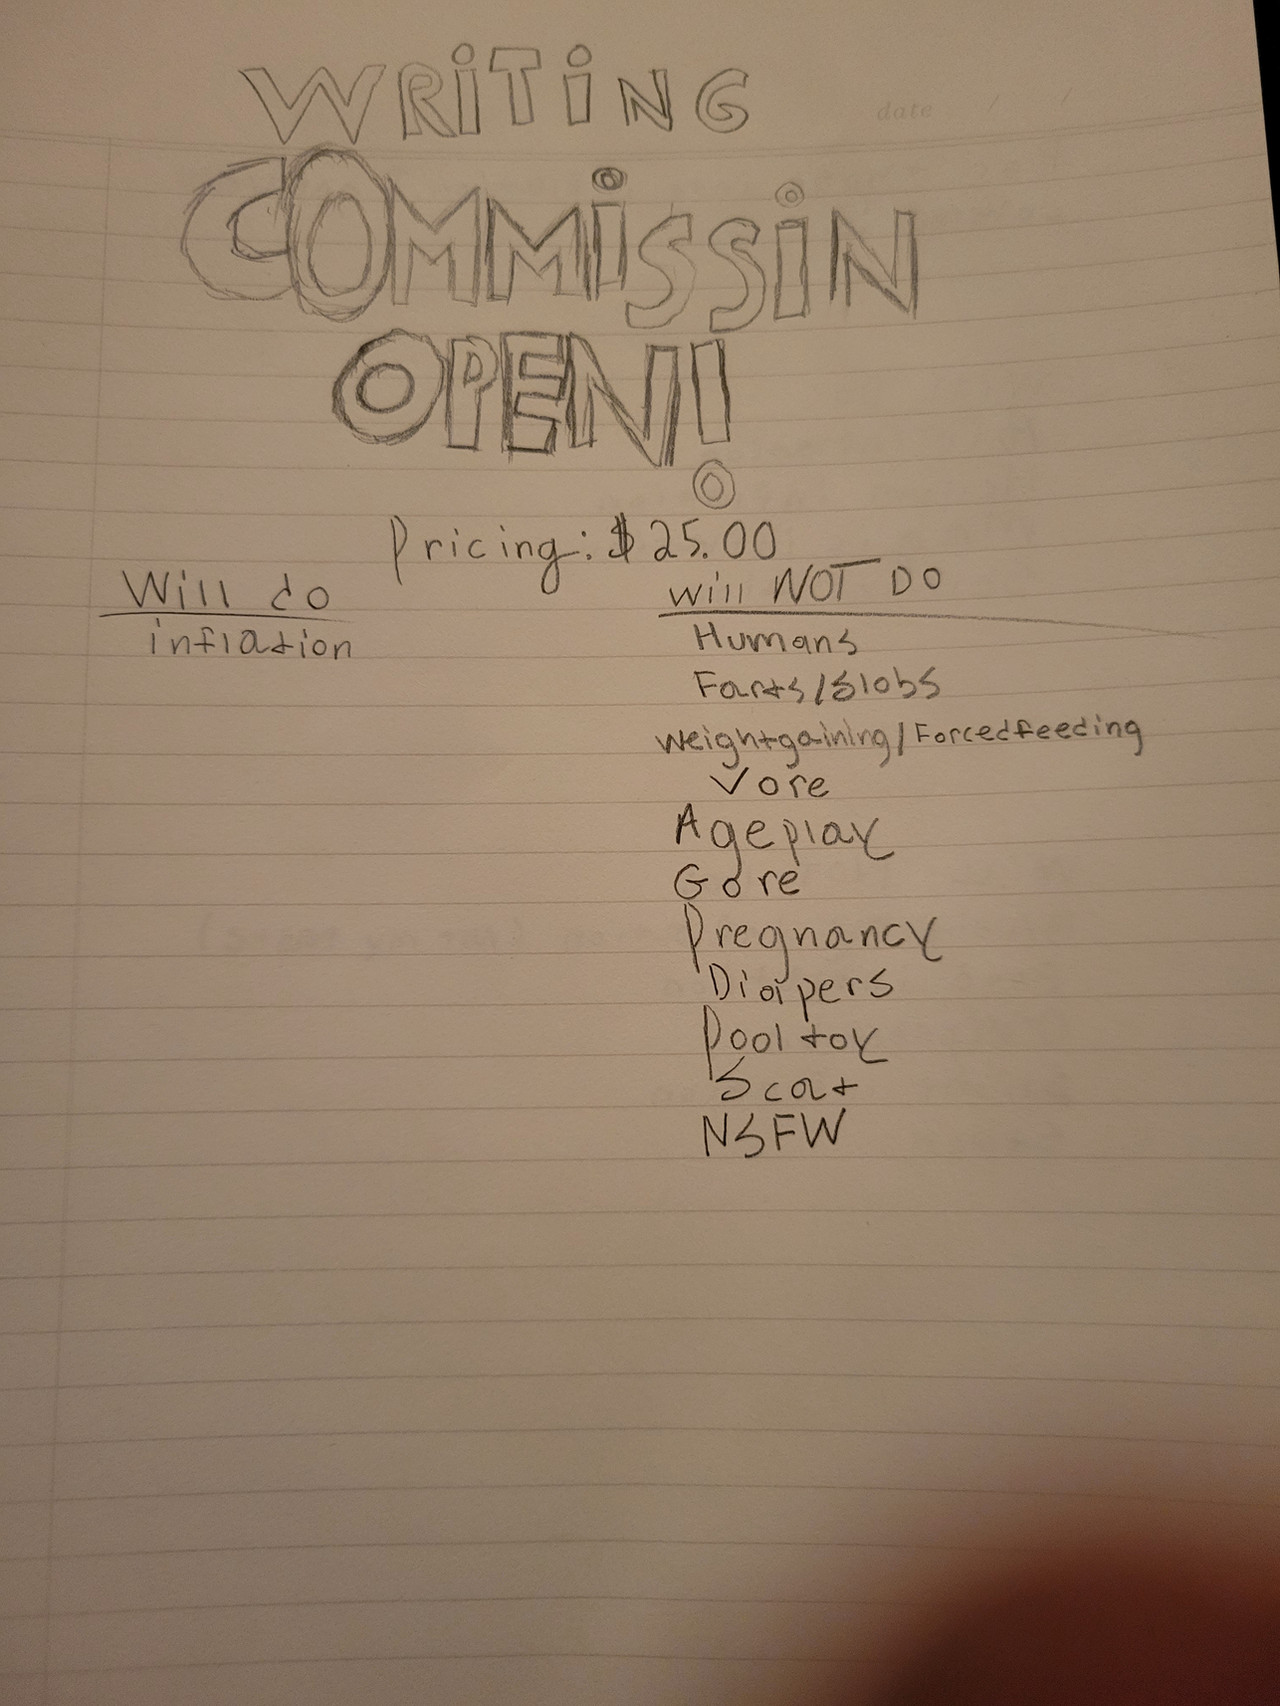 date / /
WRiTiNG
COMMiSSiN
OPEN!
Pricing: $25.00
Will do
inflation
Will NOT DO
Humans
Farts/Slobs
Weightgaining/Forcedfeeding
Vore
Ageplay
Gore
Pregnancy
Diaipers
Pool toy
Scat
NSFW